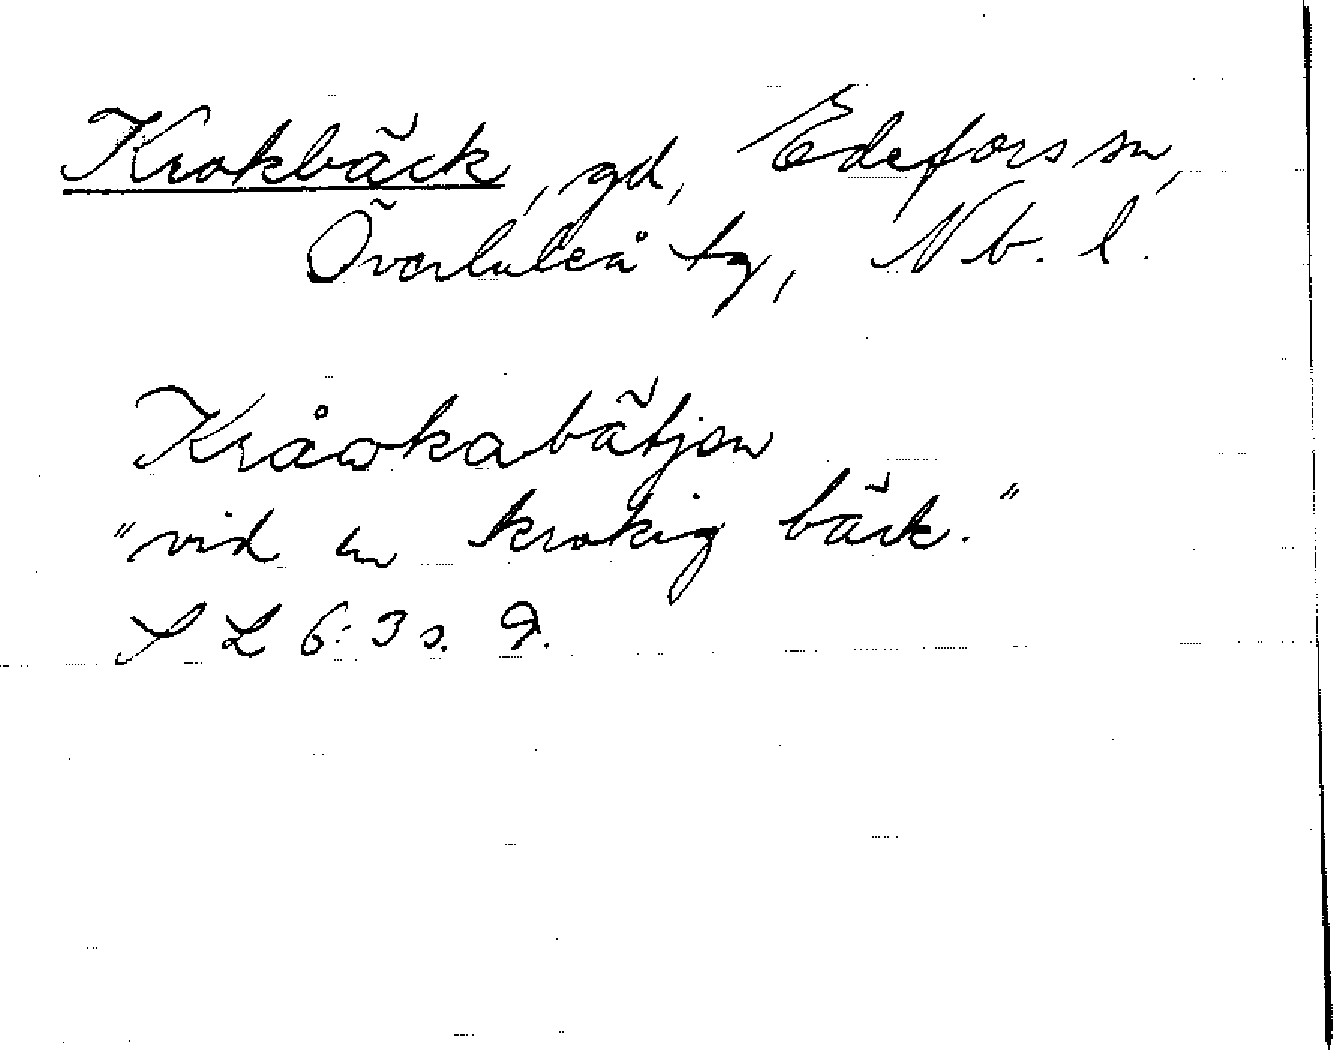 Krokbäck, gd, Edefors sn,
Överluleå tg, Nb. l.
Kråwkabätjen
"vid en krokig bäck."
S L 6:3 s. 9.